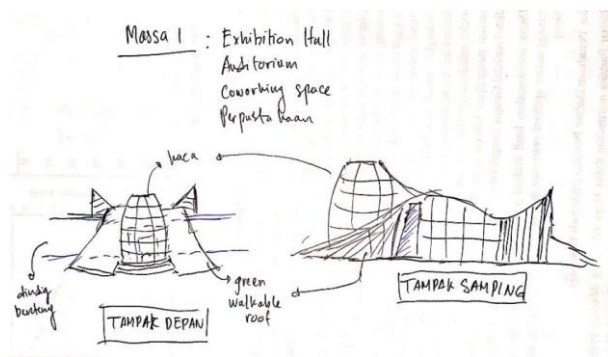 Massa 1 : Exhibition Hall
Auditorium
Coworking Space
Perpustakaan
kaca
dinding
benteng
green
walkable
roof
TAMPAK DEPAN
TAMPAK SAMPING